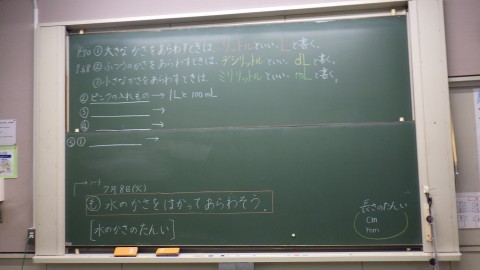 P.30 ① 大きな かさをあらわすときは、リットルといい、Lと書く。
P.68 ② ふつうのかさをあらわすときは、デシリットルといい、dLと書く。
③ 小さなかさをあらわすときは、ミリリットルといい、mLと書く。
② ピンクの入れもの → 1Lと100mL
③ →
④ →
① →
7月8日(火)
水のかさをはかってあらわそう。
[水のかさのたんい]
長さのたんい
cm
mm